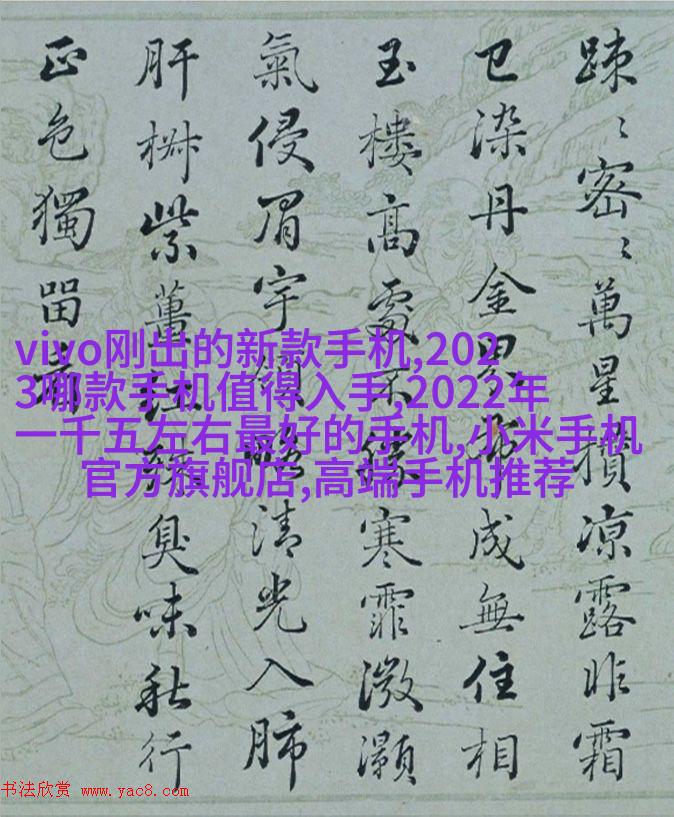 踈〻密〻萬星攢凉露昨霜
已染丹金界成無住相
玉樓髙處不勝寒霏溦灝
氣侵眉宇領清光入肺
肝椒紫臭味秋行
正色獨留
vivo刚出的新款手机,202
3哪款手机值得入手,2022年
一千五左右最好的手机,小米手机
官方旗舰店,高端手机推荐
书法欣赏 www.yac8.com